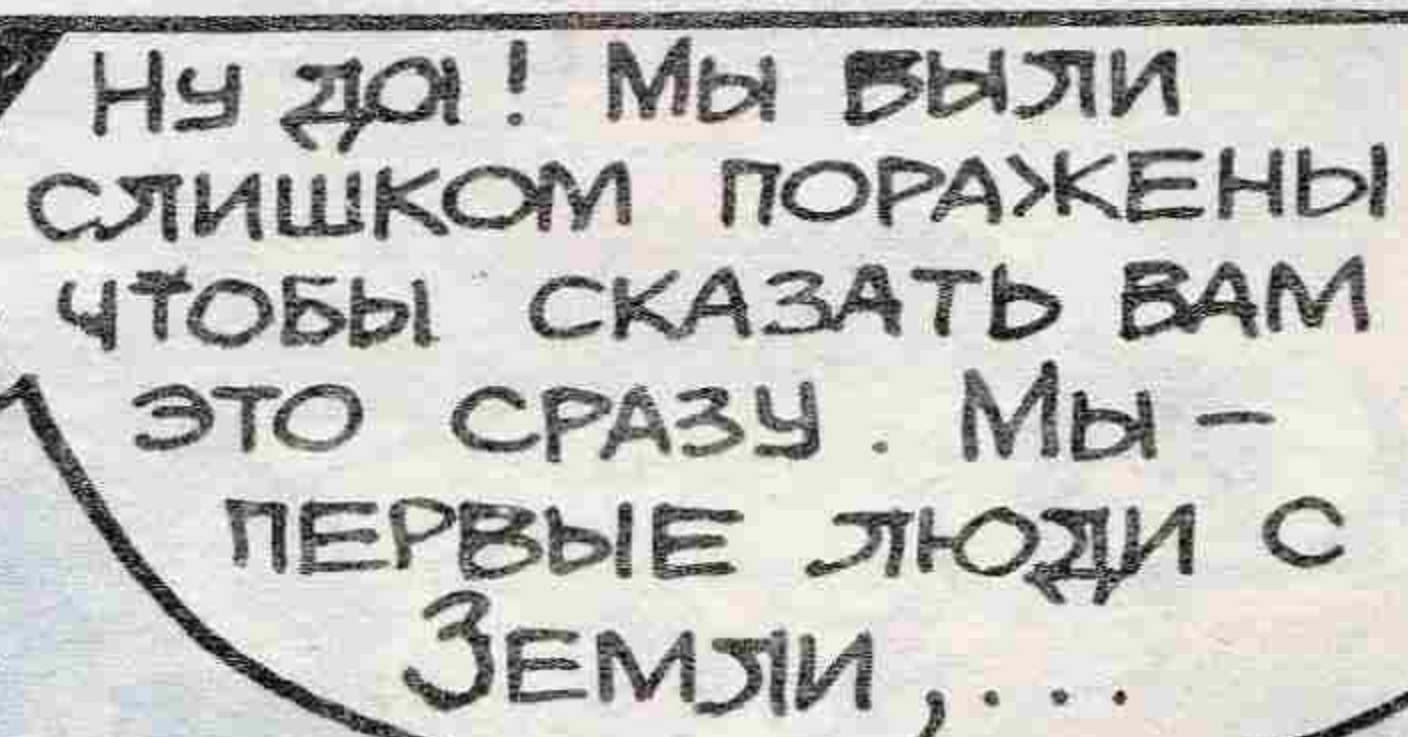 Ну да! Мы выли
слишком поражены
чтобы сказать вам
это сразу. Мы –
первые люди с
Земли,...